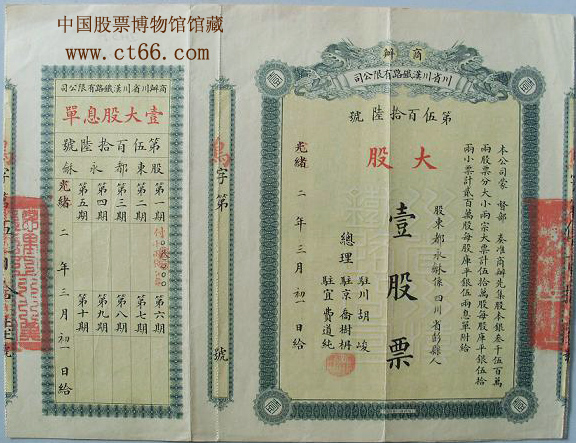 中国股票博物馆馆藏
www.ct66.com
商辦
川省川漢鐵路有限公司
第伍百拾陸號
大股
本公司蒙 督部 奏准商辦先集股本銀叁千伍百萬
兩股票分大小兩宗大票計伍拾萬股每股庫平銀伍拾
兩小票計貳百萬股每股庫平銀伍兩息單附給
股東都永龢係四川省彭縣人
壹股票
總理
駐川胡峻
駐京喬樹枏
駐宜費道純
光緒 二 年 三月 初一 日給
字第 號
商辦川省川漢鐵路有限公司
壹大股息單
第伍百拾陸號
股東都永龢
第一期
第二期
第三期
第四期
第五期
第六期
第七期
第八期
第九期
第十期
光緒 二 年 三月 初一 日給